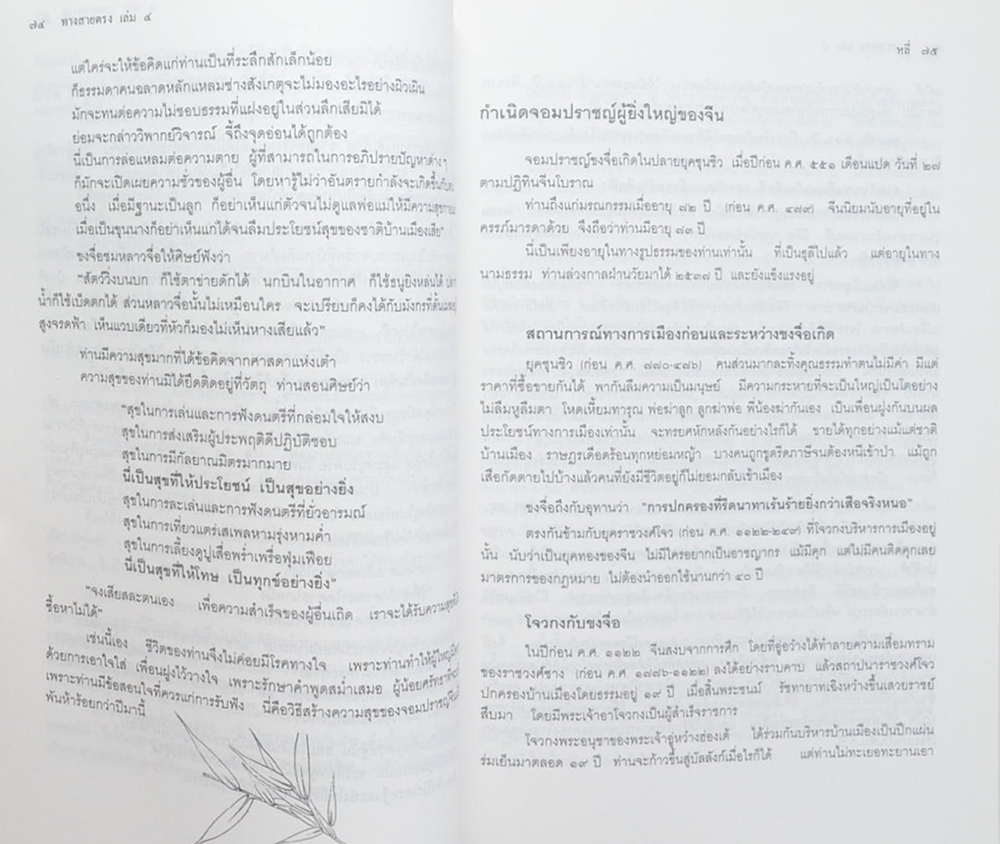 ๗๔ ทางสายตรง เล่ม ๔
แต่ใคร่จะให้ข้อคิดแก่ท่านเป็นที่ระลึกสักเล็กน้อย
ก็ธรรมดาคนฉลาดหลักแหลมช่างสังเกตุจะไม่มองอะไรอย่างผิวเผิน
มักจะทนต่อความไม่ชอบธรรมที่แฝงอยู่ในส่วนลึกเสียมิได้
ย่อมจะกล่าววิพากย์วิจารณ์ จี้ถึงจุดอ่อนได้ถูกต้อง
นี่เป็นการล่อแหลมต่อความตาย ผู้ที่สามารถในการอภิปรายปัญหาต่างๆ
ก็มักจะเปิดเผยความชั่วของผู้อื่น โดยหารู้ไม่ว่าอันตรายกำลังจะเกิดขึ้นกับตน
อนึ่ง เมื่อมีฐานะเป็นลูก ก็อย่าเห็นแก่ตัวจนไม่ดูแลพ่อแม่ให้มีความสุข
เมื่อเป็นขุนนางก็อย่าเห็นแก่ได้จนลืมประโยชน์สุขของชาติบ้านเมืองเสีย"
ขงจื่อชมหลาวจื่อให้ศิษย์ฟังว่า
"สัตว์วิ่งบนบก ก็ใช้ตาข่ายดักได้ นกบินในอากาศ ก็ใช้ธนูยิงหล่นได้
น้ำก็ใช้เบ็ดตกได้ ส่วนหลาวจื่อนั้นไม่เหมือนใคร จะเปรียบก็คงได้กับมังกรที่
สูงจรดฟ้า เห็นแวบเดียวที่หัวก็มองไม่เห็นหางเสียแล้ว"
ท่านมีความสุขมากที่ได้ข้อคิดจากศาสดาแห่งเต๋า
ความสุขของท่านมิได้ยึดติดอยู่ที่วัตถุ ท่านสอนศิษย์ว่า
"สุขในการเล่นและการฟังดนตรีที่กล่อมใจให้สงบ
สุขในการส่งเสริมผู้ประพฤติดีปฏิบัติชอบ
สุขในการมีกัลยาณมิตรมากมาย
นี่เป็นสุขที่ให้ประโยชน์ เป็นสุขอย่างยิ่ง
สุขในการละเล่นและการฟังดนตรีที่ยั่วอารมณ์
สุขในการเที่ยวแตร่เสเพลหามรุ่งหามค่ำ
สุขในการเลี้ยงดูปูเสื่อพร่ำเพรื่อฟุ่มเฟือย
นี่เป็นสุขที่ให้โทษ เป็นทุกข์อย่างยิ่ง"
"จงเสียสละตนเอง เพื่อความสำเร็จของผู้อื่นเถิด เราจะได้รับความสุขที่
ซื้อหาไม่ได้"
เช่นนี้เอง ชีวิตของท่านจึงไม่ค่อยมีโรคทางใจ เพราะท่านทำให้ผู้ใหญ่
ด้วยการเอาใจใส่ เพื่อนฝูงไว้วางใจ เพราะรักษาคำพูดสม่ำเสมอ ผู้น้อยศรัทธา
เพราะท่านมีข้อสอนใจที่ควรแก่การรับฟัง นี่คือวิธีสร้างความสุขของจอมปราชญ์
พันห้าร้อยกว่าปีมานี้
หลี่ ๗๕
กำเนิดจอมปราชญ์ผู้ยิ่งใหญ่ของจีน
จอมปราชญ์ขงจื่อเกิดในปลายยุคชุนชิว เมื่อปีก่อน ค.ศ. ๕๕๑ เดือนแปด วันที่ ๒๗
ตามปฏิทินจีนโบราณ
ท่านถึงแก่มรณกรรมเมื่ออายุ ๗๒ ปี (ก่อน ค.ศ. ๔๗๙) จีนนิยมนับอายุที่อยู่ใน
ครรภ์มารดาด้วย จึงถือว่าท่านมีอายุ ๗๓ ปี
นี่เป็นเพียงอายุในทางรูปธรรมของท่านเท่านั้น ที่เป็นธุลีไปแล้ว แต่อายุในทาง
นามธรรม ท่านล่วงกาลผ่านวัยมาได้ ๒๕๓๗ ปี และยังแข็งแรงอยู่
สถานการณ์ทางการเมืองก่อนและระหว่างขงจื่อเกิด
ยุคชุนชิว (ก่อน ค.ศ. ๗๗๐-๔๗๖) คนส่วนมากละทิ้งคุณธรรมทำตนไม่มีค่า มีแต่
ราคาที่ซื้อขายกันได้ พากันลืมความเป็นมนุษย์ มีความกระหายที่จะเป็นใหญ่เป็นโตอย่าง
ไม่ลืมหูลืมตา โหดเหี้ยมทารุณ พ่อฆ่าลูก ลูกฆ่าพ่อ พี่น้องฆ่ากันเอง เป็นเพื่อนฝูงกันบนผล
ประโยชน์ทางการเมืองเท่านั้น จะทรยศหักหลังกันอย่างไรก็ได้ ขายได้ทุกอย่างแม้แต่ชาติ
บ้านเมือง ราษฎรเดือดร้อนทุกหย่อมหญ้า บางคนถูกขูดรีดภาษีจนต้องหนีเข้าป่า แม้ถูก
เสือกัดตายไปบ้างแล้วคนที่ยังมีชีวิตอยู่ก็ไม่ยอมกลับเข้าเมือง
ขงจื่อถึงกับอุทานว่า "การปกครองที่รีดนาทาเร้นร้ายยิ่งกว่าเสือจริงหนอ"
ตรงกันข้ามกับยุคราชวงศ์โจว (ก่อน ค.ศ. ๑๑๒๒-๒๔๙) ที่โจวกงบริหารการเมืองอยู่
นั้น นับว่าเป็นยุคทองของจีน ไม่มีใครอยากเป็นอาชญากร แม้มีคุก แต่ไม่มีคนติดคุกเลย
มาตรการของกฎหมาย ไม่ต้องนำออกใช้นานกว่า ๔๐ ปี
โจวกงกับขงจื่อ
ในปีก่อน ค.ศ. ๑๑๒๒ จีนสงบจากการศึก โดยที่อู่อว๋างได้ทำลายความเสื่อมทราม
ของราชวงศ์ซาง (ก่อน ค.ศ. ๑๗๗๖-๑๑๒๒) ลงได้อย่างราบคาบ แล้วสถาปนาราชวงศ์โจว
ปกครองบ้านเมืองโดยธรรมอยู่ ๑๙ ปี เมื่อสิ้นพระชนม์ รัชทายาทเฉิงหว่างขึ้นเสวยราชย์
สืบมา โดยมีพระเจ้าอาโจวกงเป็นผู้สำเร็จราชการ
โจวกงพระอนุชาของพระเจ้าอู่หว่างฮ่องเต้ ได้ร่วมกันบริหารบ้านเมืองเป็นปึกแผ่น
ร่มเย็นมาตลอด ๑๙ ปี ท่านจะก้าวขึ้นสู่บัลลังก์เมื่อไรก็ได้ แต่ท่านไม่ทะเยอทะยานเอา